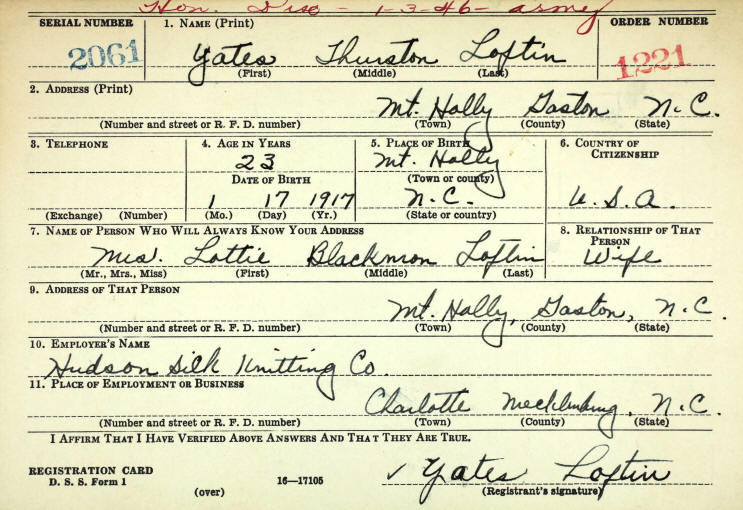 Hon. Disc - 1-3-46 - army
SERIAL NUMBER 1. NAME (Print) ORDER NUMBER
2061 Yates Thurston Loftin 1221
(First) (Middle) (Last)
2. ADDRESS (Print)
Mt. Holly Gaston N.C.
(Number and street or R. F. D. number) (Town) (County) (State)
3. TELEPHONE 4. AGE IN YEARS 5. PLACE OF BIRTH 6. COUNTRY OF CITIZENSHIP
23 Mt. Holly
DATE OF BIRTH (Town or county)
1 17 1917 N.C. U.S.A.
(Exchange) (Number) (Mo.) (Day) (Yr.) (State or country)
7. NAME OF PERSON WHO WILL ALWAYS KNOW YOUR ADDRESS 8. RELATIONSHIP OF THAT PERSON
Mrs. Lottie Blackmon Loftin Wife
(Mr., Mrs., Miss) (First) (Middle) (Last)
9. ADDRESS OF THAT PERSON
Mt. Holly, Gaston, N.C.
(Number and street or R. F. D. number) (Town) (County) (State)
10. EMPLOYER'S NAME
Hudson Silk Knitting Co.
11. PLACE OF EMPLOYMENT OR BUSINESS
Charlotte Mecklenburg, N.C.
(Number and street or R. F. D. number) (Town) (County) (State)
I AFFIRM THAT I HAVE VERIFIED ABOVE ANSWERS AND THAT THEY ARE TRUE.
REGISTRATION CARD
D. S. S. Form 1 16—17105 ✓ Yates Loftin
(over) (Registrant's signature)